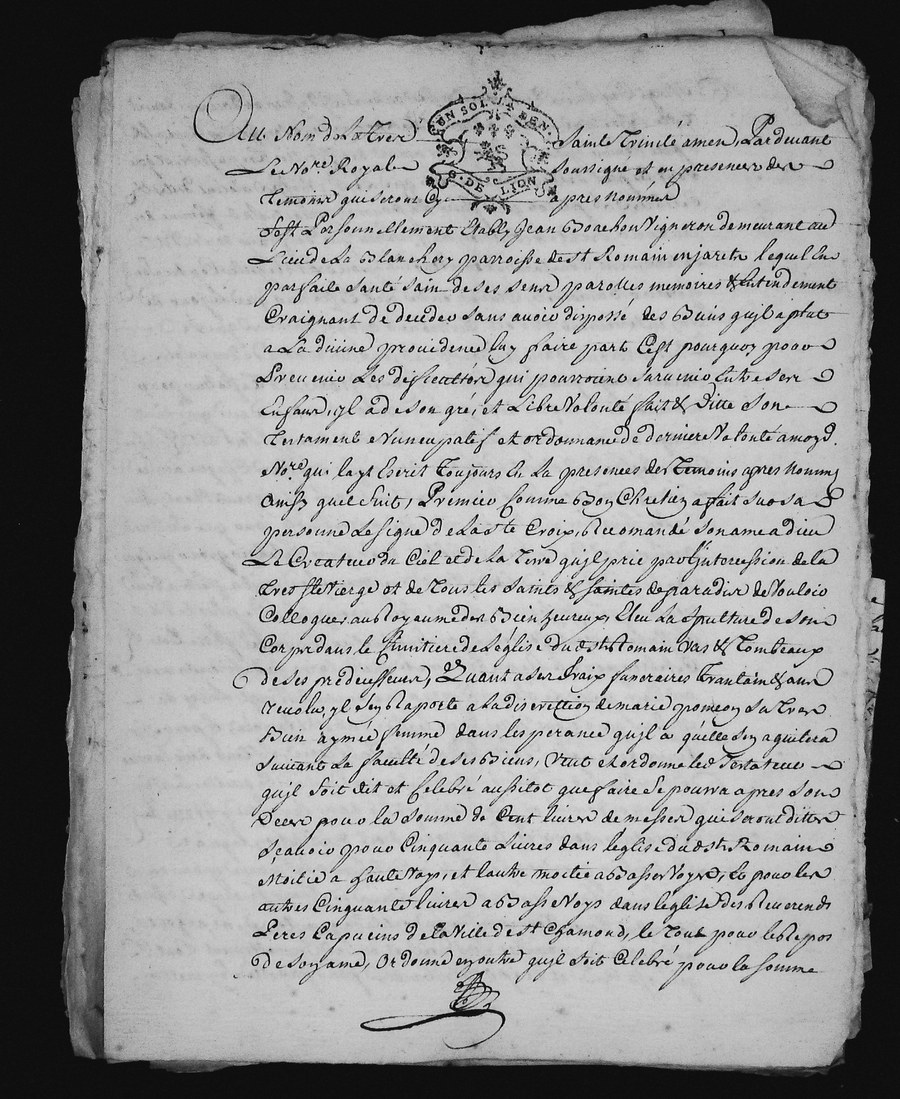 Au Nom de La tres Sainte Trinité amen, Pardevant
UN SOL 4 DEN.
G. DE LION
Le No.re Royal Soussigné et en presence des
temoins qui seront Cy apres nommés
S'est Personnellement Etably Jean Bonehou Vigneron demeurant au
Lieu de La Blanchery parroisse de st Romain en jarets lequel En
parfaite santé sain de ses sens parolles memoires & Entendement
Craignant de deceder sans avoir disposé des Biens qu'jl a plut
a La divine providence luy faire part C'est pourquoy pour
Prevenir Les difficultés qui pourroient survenir Entre ses
Enfans, jl a de son gré, et Libre Volonté fait & Ditte son
Testament Nuncupatif et ordonnance de derniere Volonté a moyd.
No.re qui layt Escrit Toujours En La presences des Temoins apres nommes
Ainsy que s'suit, Premier Comme Bon Chretien a fait sur sa
personne Le signe de La ste Croix, Recomandé son ame a dieu
Le Createur du Ciel et de La Terre qu'jl prie par l'jntercession de la
Tres ste Vierge et de Tous les saints & saintes de paradis de Vouloir
Colloquer au Royaume des Bienheureux, Eleu La sepulture de son
Corps dans le Cimitiere de L'eglise du st Romain Vas & Tombeaux
de ses predecesseurs, Quant a ses fraix funeraires Trantain & aux
revolu, jl s'en Raporte a La discrettion de marie pomeon sa tres
Bien aymée femme dans l'esperance qu'jl a qu'elle s'en aquitera
suivant La faculté de ses Biens, Veut et ordonne led Testateur
qu'jl soit dit et Celebré aussitot que faire se pourra apres son
Deces pour la somme de Cent livres de messes qui seront dittes
sçavoir pour Cinquante Livres dans leglise du st Romain
Moitié a haute Voys, et l'autre moitié a Basses Voyx, Et pour les
autres Cinquante livres a Basse Voys dans leglise des Reverends
Peres Capucins de la Ville de st Chamond, le Tout pour le Repos
de son ame, Ordonne en outre qu'jl soit Celebré pour la somme